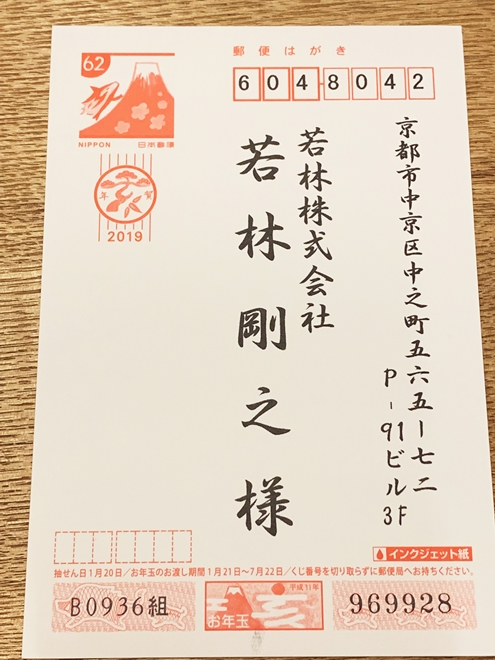 62
NIPPON 日本郵便
年賀
2019
郵便はがき
6048042
京都市中京区中之町五六五ー七二
P-91ビル3F
若林株式会社
若林剛之様
インクジェット紙
抽せん日1月20日/お年玉のお渡し期間1月21日〜7月22日/くじ番号を切り取らずに郵便局へお持ちください。
B0936組
平成31年
お年玉
969928